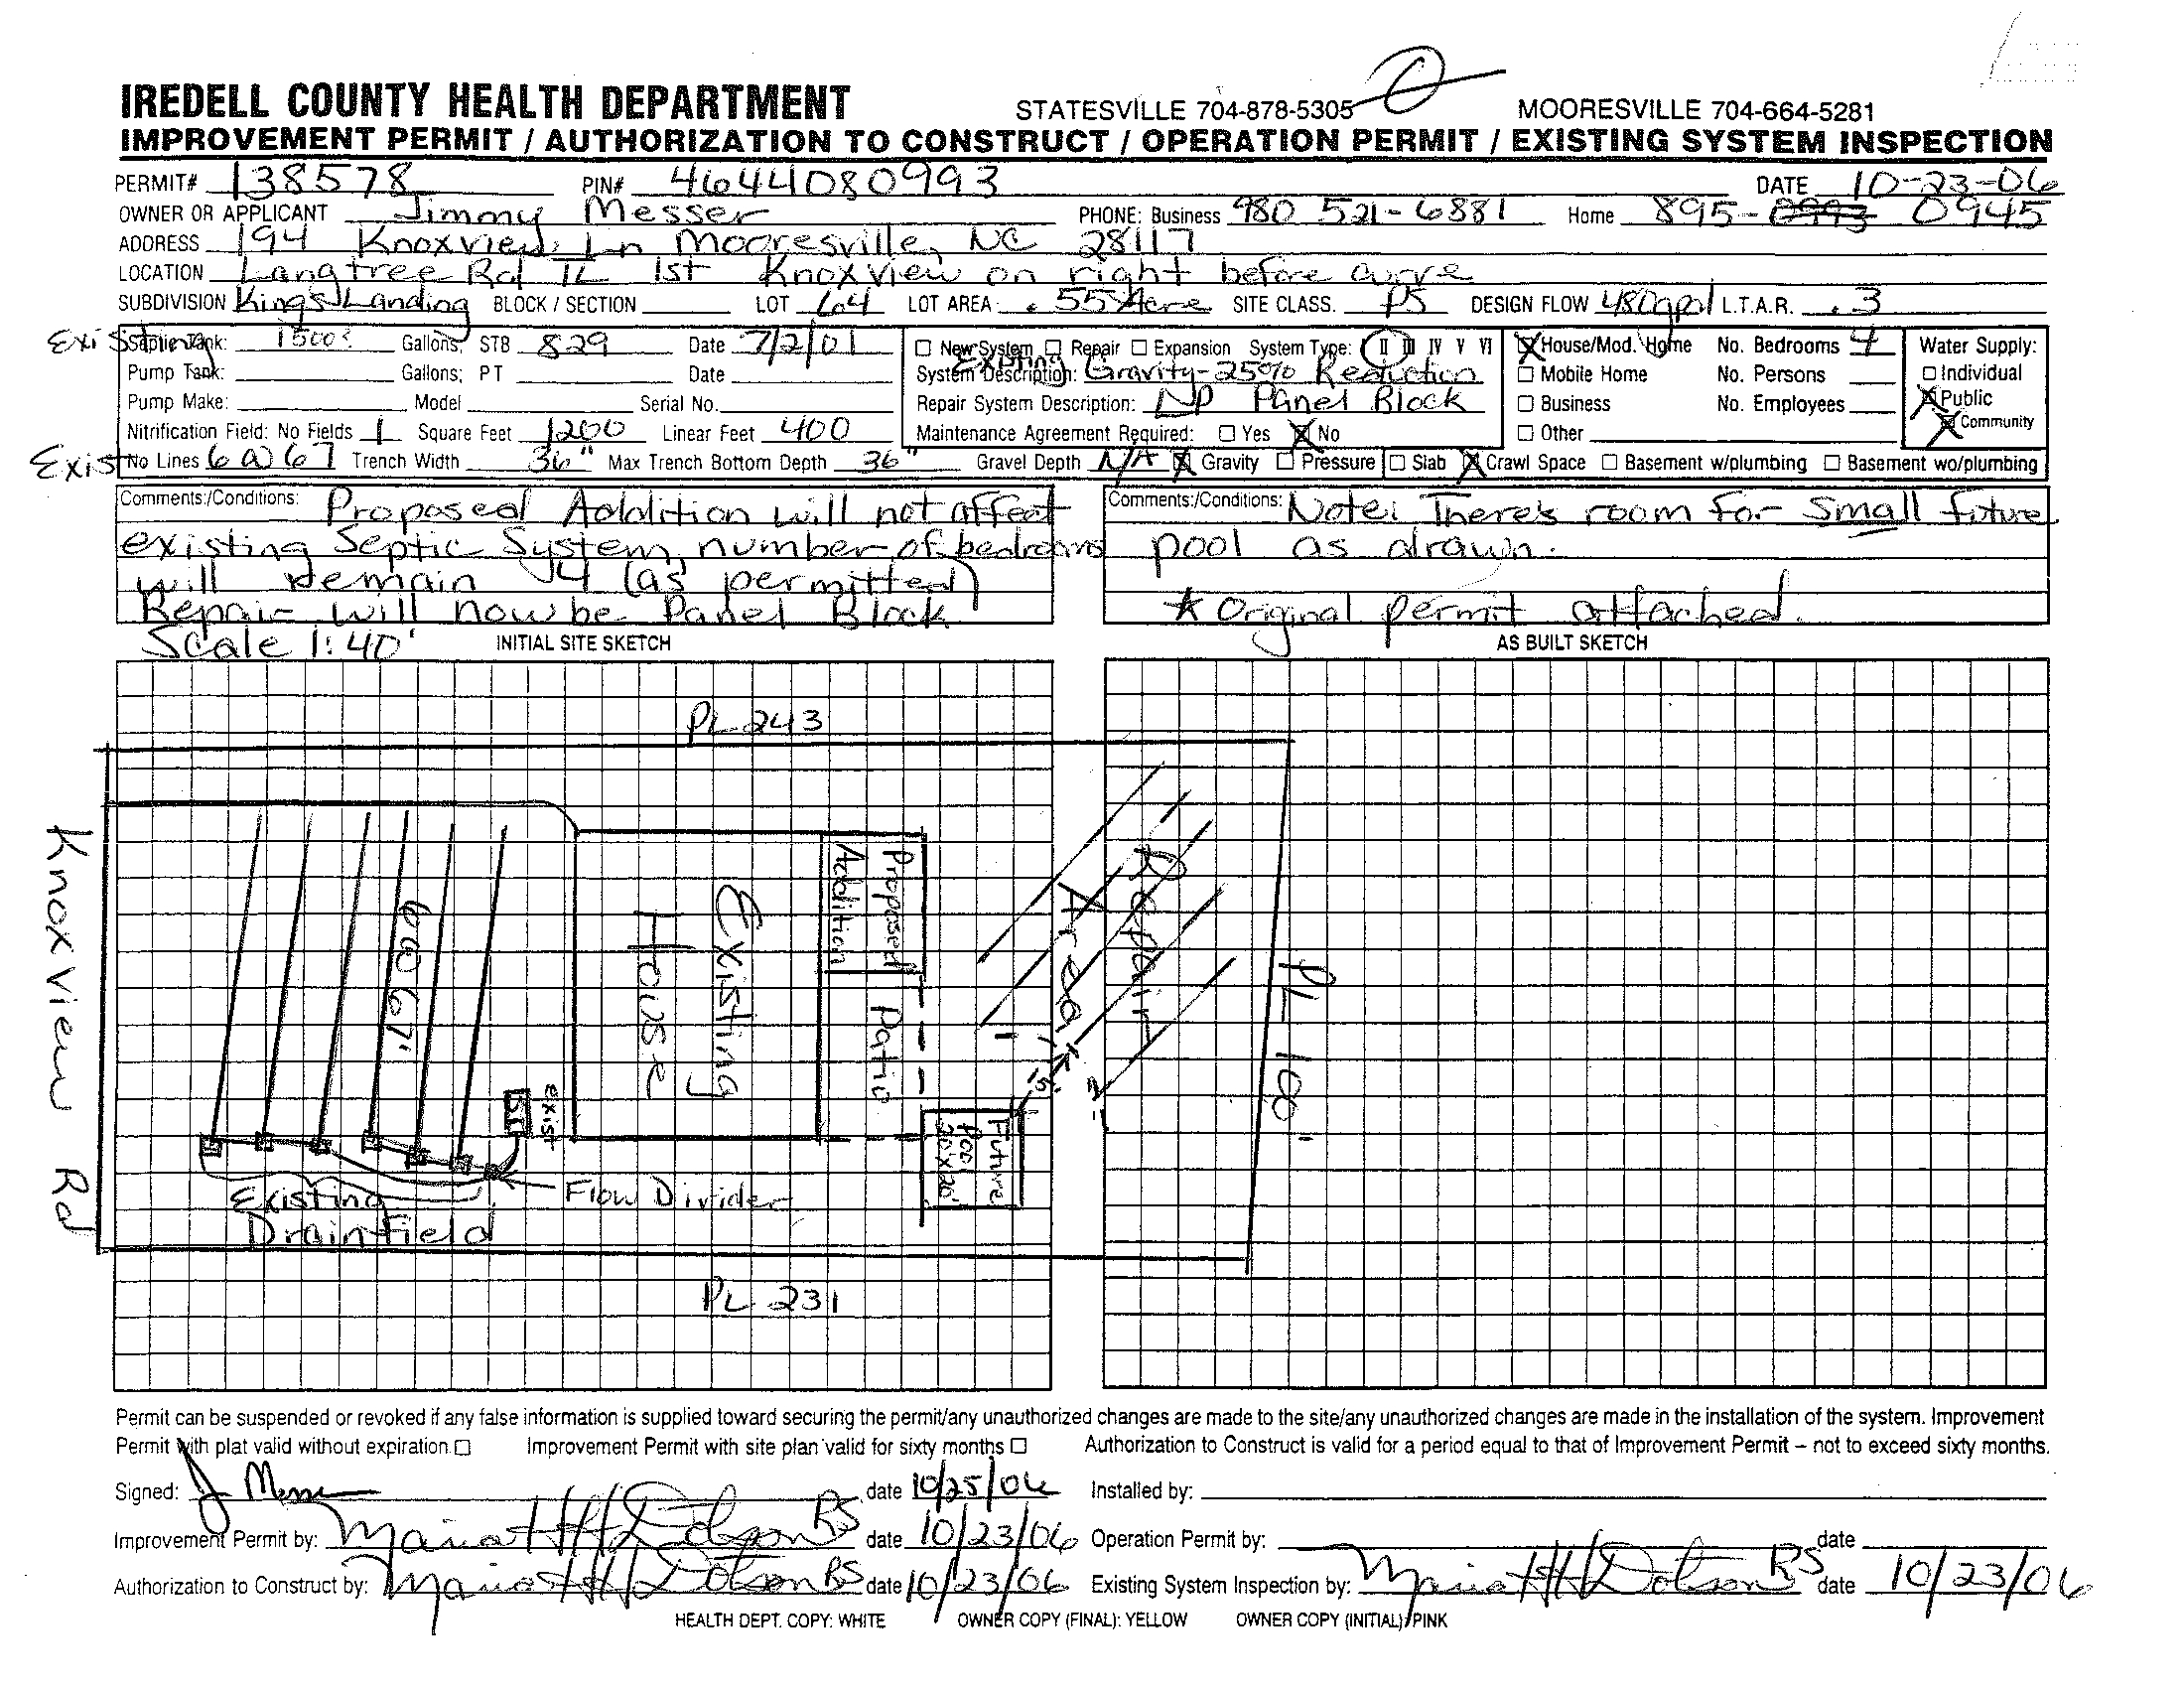 IREDELL COUNTY HEALTH DEPARTMENT STATESVILLE 704-878-5305 MOORESVILLE 704-664-5281
IMPROVEMENT PERMIT / AUTHORIZATION TO CONSTRUCT / OPERATION PERMIT / EXISTING SYSTEM INSPECTION
PERMIT# 138578 PIN# 4644080993 DATE 10-23-06
OWNER OR APPLICANT Jimmy Messer PHONE: Business 980 521-6881 Home 895-0993 0945
ADDRESS 194 Knoxview Ln Mooresville, NC 28117
LOCATION Langtree Rd TL 1st Knoxview on right before curve
SUBDIVISION King's Landing BLOCK / SECTION LOT 64 LOT AREA .55 Acre SITE CLASS. PS DESIGN FLOW 480gpd L.T.A.R. .3
Existing Septic Tank: 1500? Gallons; STB 829 Date 7/2/01 □ New System □ Repair □ Expansion System Type: II III IV V VI X House/Mod. Home No. Bedrooms 4 Water Supply:
Pump Tank: Gallons; PT Date Existing System Description: Gravity-25% Reduction □ Mobile Home No. Persons □ Individual
Pump Make: Model Serial No. Repair System Description: NP Panel Block □ Business No. Employees X Public
Nitrification Field: No Fields 1 Square Feet 1200 Linear Feet 400 Maintenance Agreement Required: □ Yes X No □ Other X Community
Exist No Lines 6 @ 67 Trench Width 36" Max Trench Bottom Depth 36" Gravel Depth N/A X Gravity □ Pressure □ Slab X Crawl Space □ Basement w/plumbing □ Basement wo/plumbing
Comments:/Conditions: Proposed Addition will not affect
existing Septic System, number of bedrooms
will remain 4 (as permitted)
Repair will now be Panel Block
Comments:/Conditions: Note: There's room for small future
pool as drawn.
* Original permit attached.
Scale 1:40' INITIAL SITE SKETCH AS BUILT SKETCH
PL 243
Knoxview Rd
6@67'
Existing
House
Proposed
Addition
Patio
Repair
Area
PL 100'
15'
exist
ST
Future
Pool
20'x20'
Flow Divider
Existing
Drainfield
PL 231
Permit can be suspended or revoked if any false information is supplied toward securing the permit/any unauthorized changes are made to the site/any unauthorized changes are made in the installation of the system. Improvement
Permit with plat valid without expiration □ Improvement Permit with site plan valid for sixty months □ Authorization to Construct is valid for a period equal to that of Improvement Permit – not to exceed sixty months.
Signed: J Messer date 10/25/06 Installed by:
Improvement Permit by: Maria H Dotson RS date 10/23/06 Operation Permit by: date
Authorization to Construct by: Maria H Dotson RS date 10/23/06 Existing System Inspection by: Maria H Dotson RS date 10/23/06
HEALTH DEPT. COPY: WHITE OWNER COPY (FINAL): YELLOW OWNER COPY (INITIAL): PINK